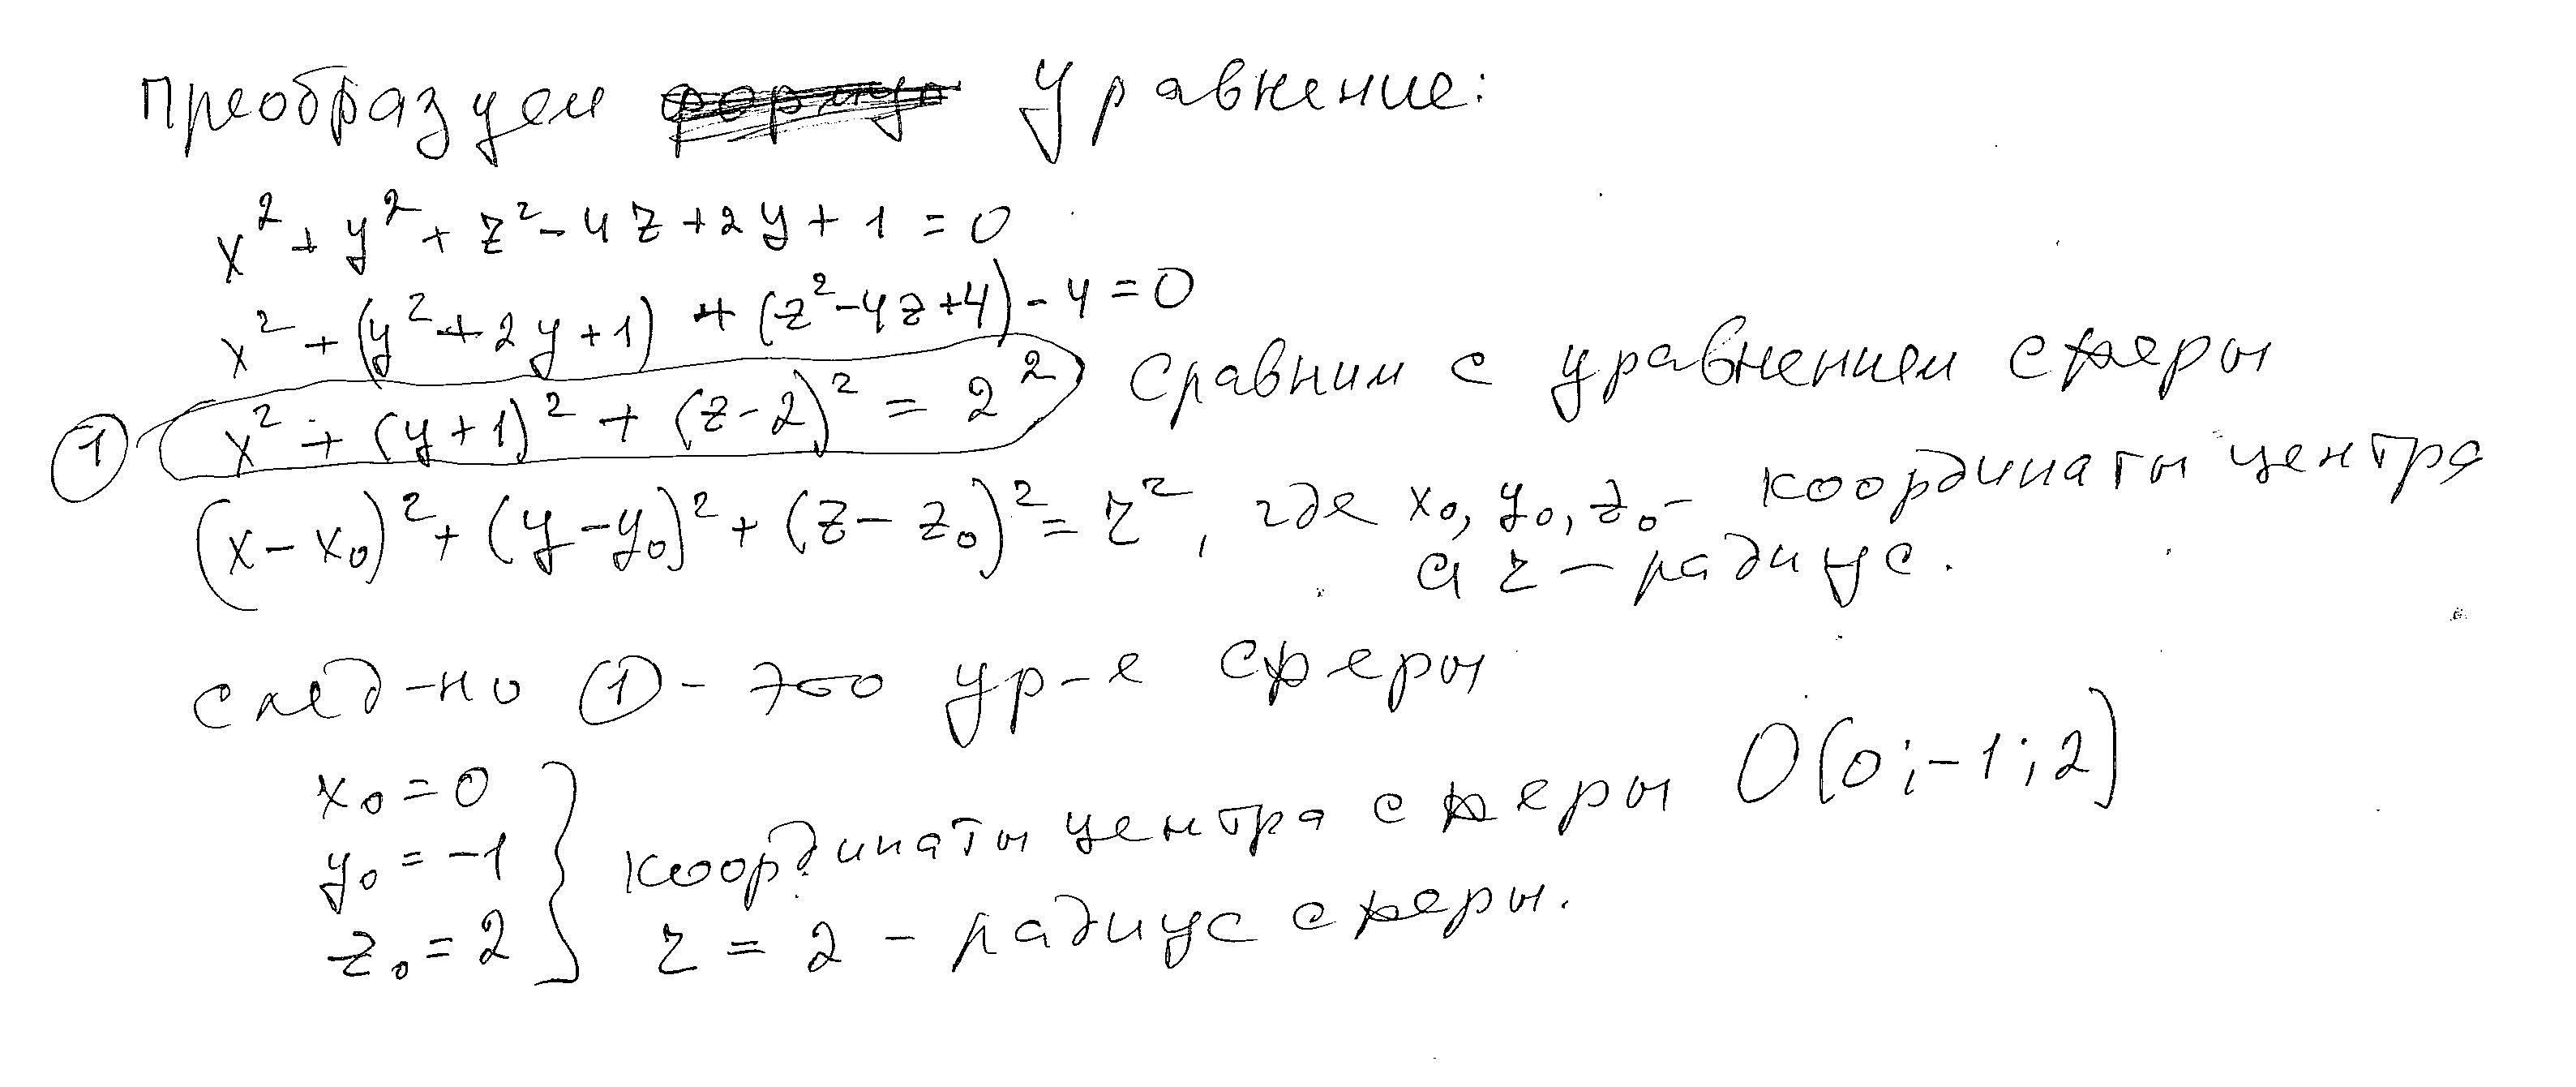 Преобразуем уравнение:
x² + y² + z² - 4z + 2y + 1 = 0
x² + (y² + 2y + 1) + (z² - 4z + 4) - 4 = 0
① x² + (y + 1)² + (z - 2)² = 2² сравним с уравнением сферы
(x - x₀)² + (y - y₀)² + (z - z₀)² = r², где x₀, y₀, z₀ - координаты центра
а r - радиус.
след-но ① - это ур-е сферы
x₀ = 0
y₀ = -1
z₀ = 2
координаты центра сферы O(0; -1; 2)
r = 2 - радиус сферы.